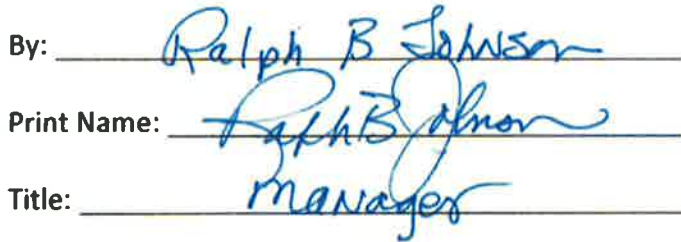 By: Ralph B Johnson
Print Name: Ralph B Johnson
Title: Manager